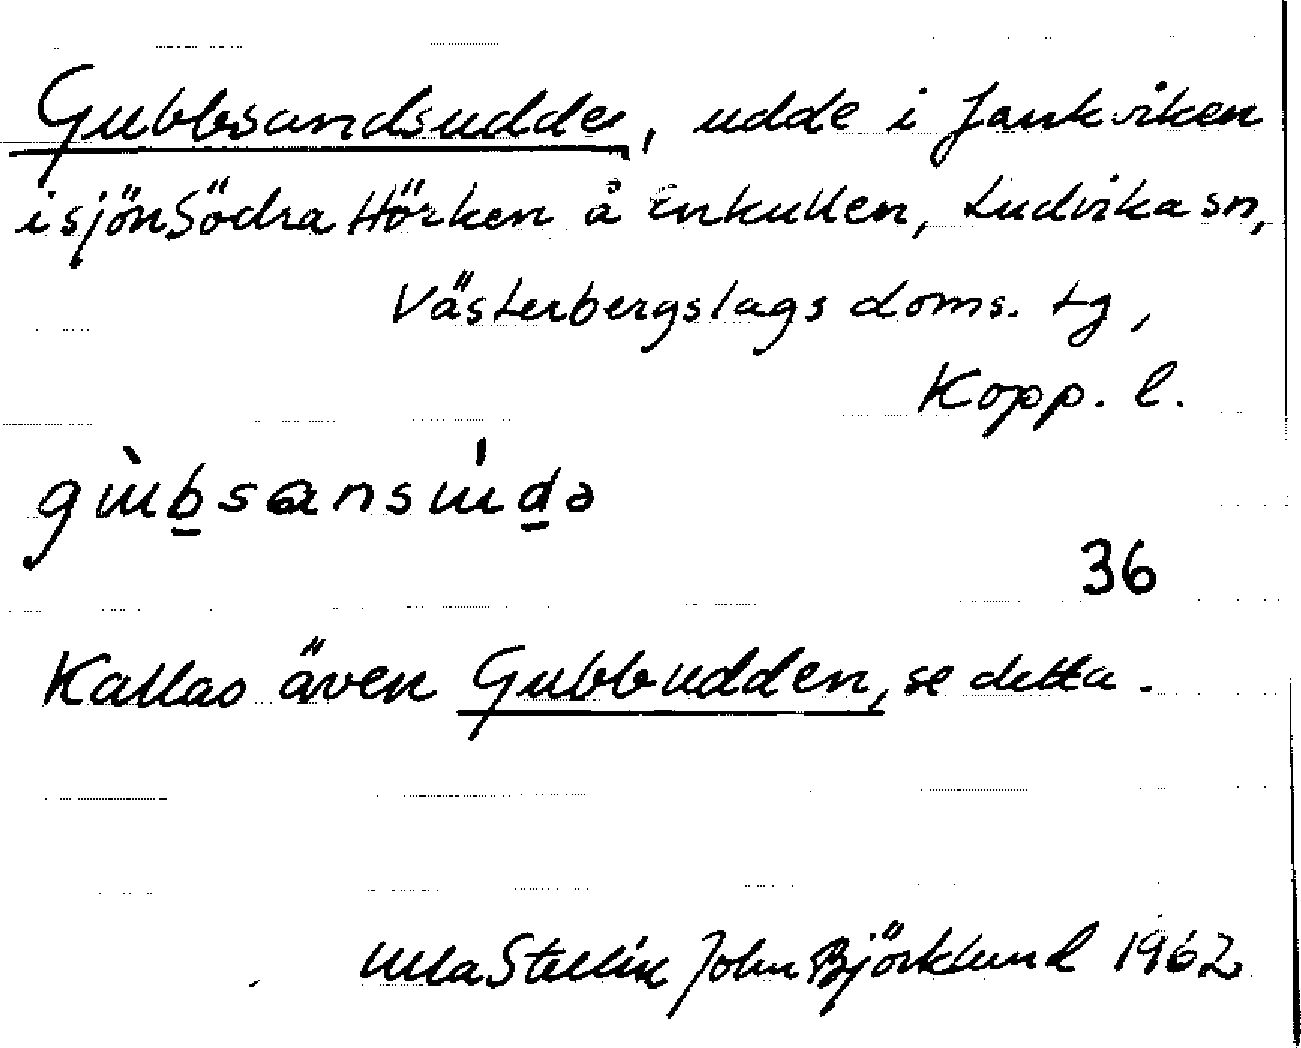 Gubbsandsudde, udde i Jankviken
i sjön Södra Hörken å Enkullen, Ludvika sn,
Västerbergslags doms. tg,
Kopp. l.
gùbsansúdə
36
Kallas även Gubbudden, se detta.
Ulla Stellin John Björklund 1962